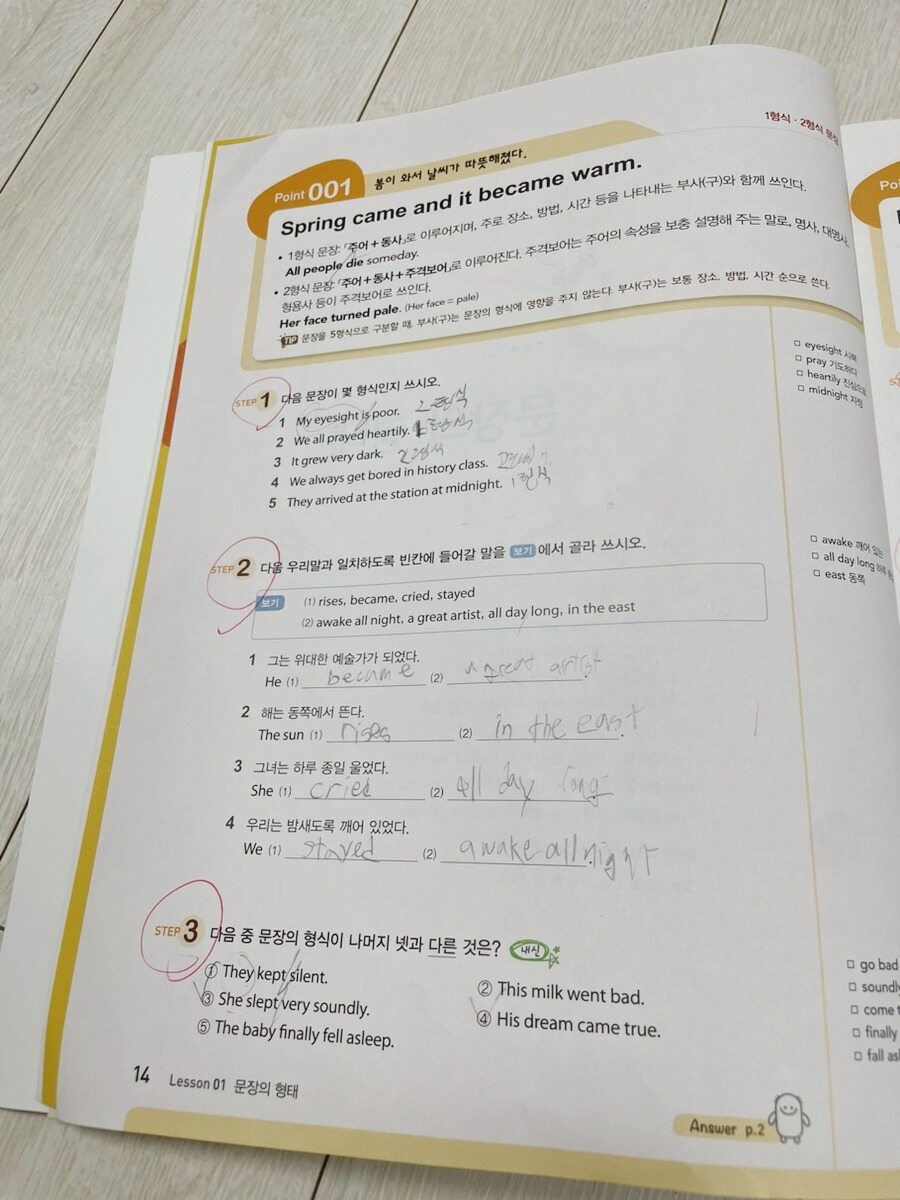 1형식 · 2형식 문장
Point 001 봄이 와서 날씨가 따뜻해졌다.
Spring came and it became warm.
• 1형식 문장: 「주어+동사」로 이루어지며, 주로 장소, 방법, 시간 등을 나타내는 부사(구)와 함께 쓰인다.
All people die someday.
• 2형식 문장: 「주어+동사+주격보어」로 이루어진다. 주격보어는 주어의 속성을 보충 설명해 주는 말로, 명사, 대명사,
형용사 등이 주격보어로 쓰인다.
Her face turned pale. (Her face = pale)
TIP 문장을 5형식으로 구분할 때, 부사(구)는 문장의 형식에 영향을 주지 않는다. 부사(구)는 보통 장소, 방법, 시간 순으로 쓴다.
STEP 1 다음 문장이 몇 형식인지 쓰시오.
1 My eyesight is poor. 2형식
2 We all prayed heartily. 1형식
3 It grew very dark. 2형식
4 We always get bored in history class.
5 They arrived at the station at midnight. 1형식
□ eyesight 시력
□ pray 기도하다
□ heartily 진심으로
□ midnight 자정
STEP 2 다음 우리말과 일치하도록 빈칸에 들어갈 말을 보기 에서 골라 쓰시오.
보기 (1) rises, became, cried, stayed
(2) awake all night, a great artist, all day long, in the east
1 그는 위대한 예술가가 되었다.
He (1) became (2) a great artist.
2 해는 동쪽에서 뜬다.
The sun (1) rises (2) in the east.
3 그녀는 하루 종일 울었다.
She (1) cried (2) all day long.
4 우리는 밤새도록 깨어 있었다.
We (1) stayed (2) awake all night.
□ awake 깨어 있는
□ all day long 하루
□ east 동쪽
STEP 3 다음 중 문장의 형식이 나머지 넷과 다른 것은? 내신
① They kept silent.
② This milk went bad.
③ She slept very soundly.
④ His dream came true.
⑤ The baby finally fell asleep.
□ go bad
□ soundly
□ come
□ finally
□ fall
14 Lesson 01 문장의 형태
Answer p.2